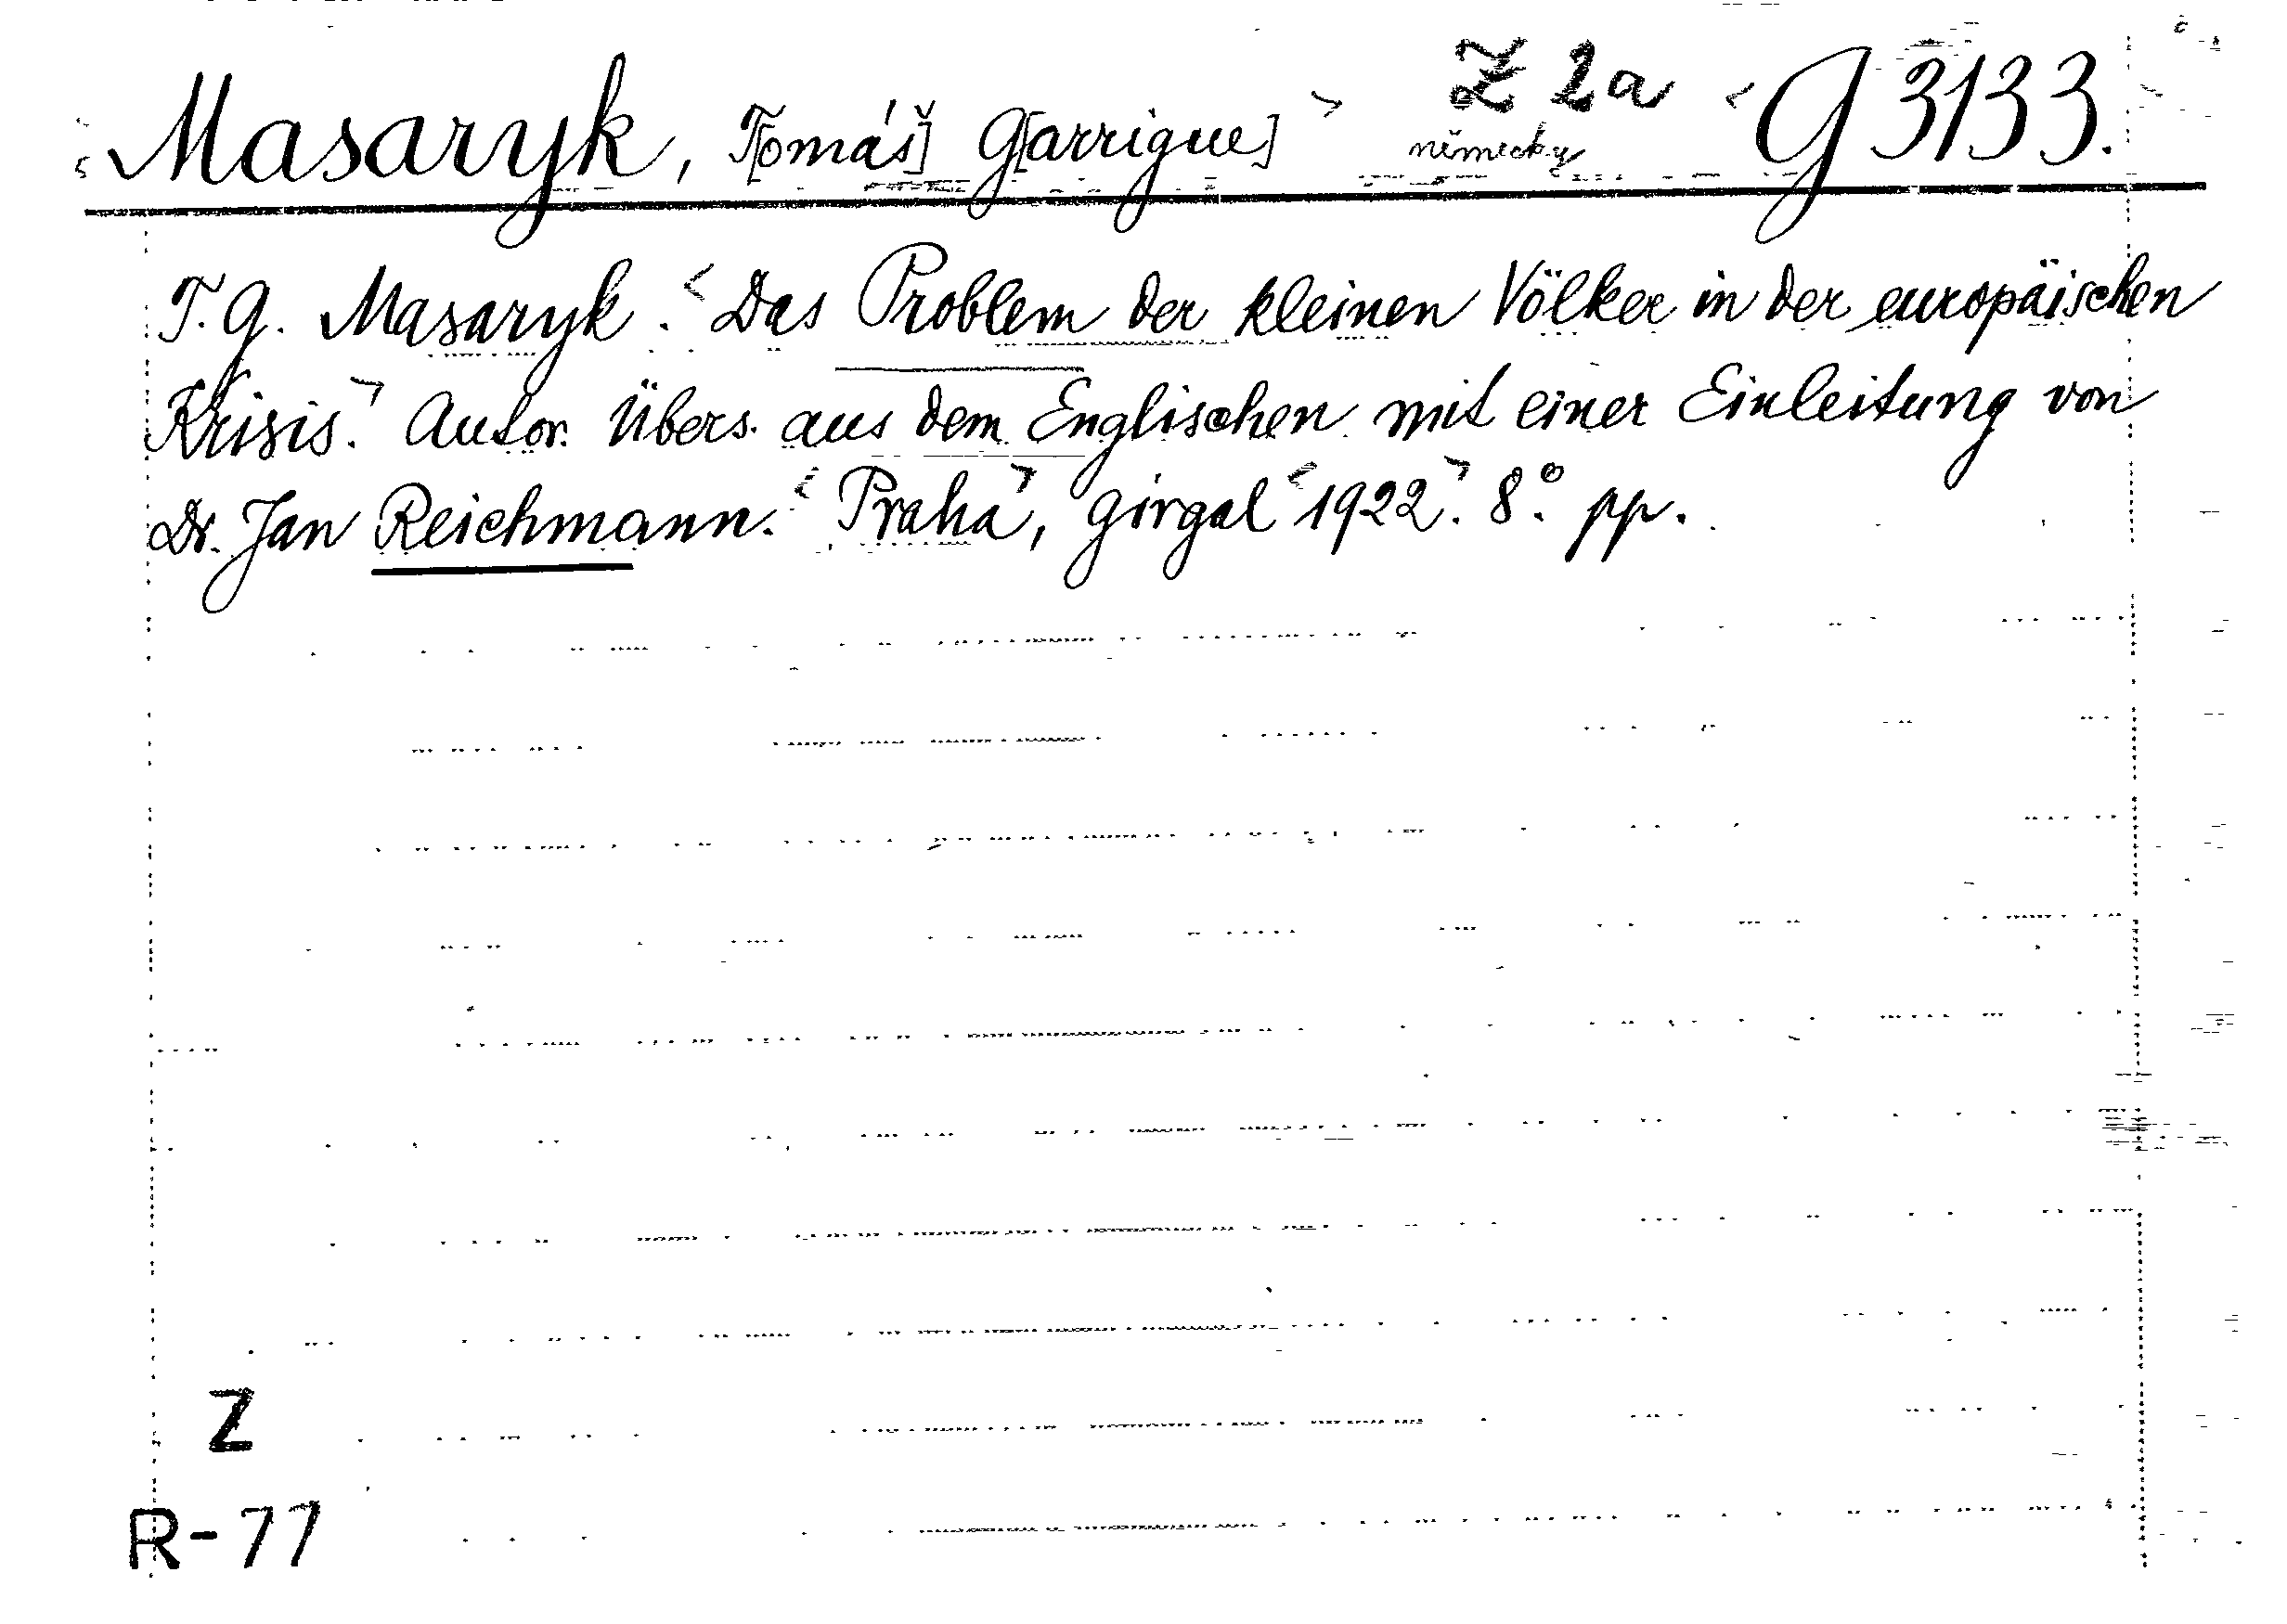 Masaryk, T[omáš] G[arrigue] Z 2a G 3133.
německy
T. G. Masaryk. Das Problem der kleinen Völker in der europäischen
Krisis. Autor. Übers. aus dem Englischen mit einer Einleitung von
Dr. Jan Reichmann. Praha, Girgal 1922. 8° pp.
Z
R-77